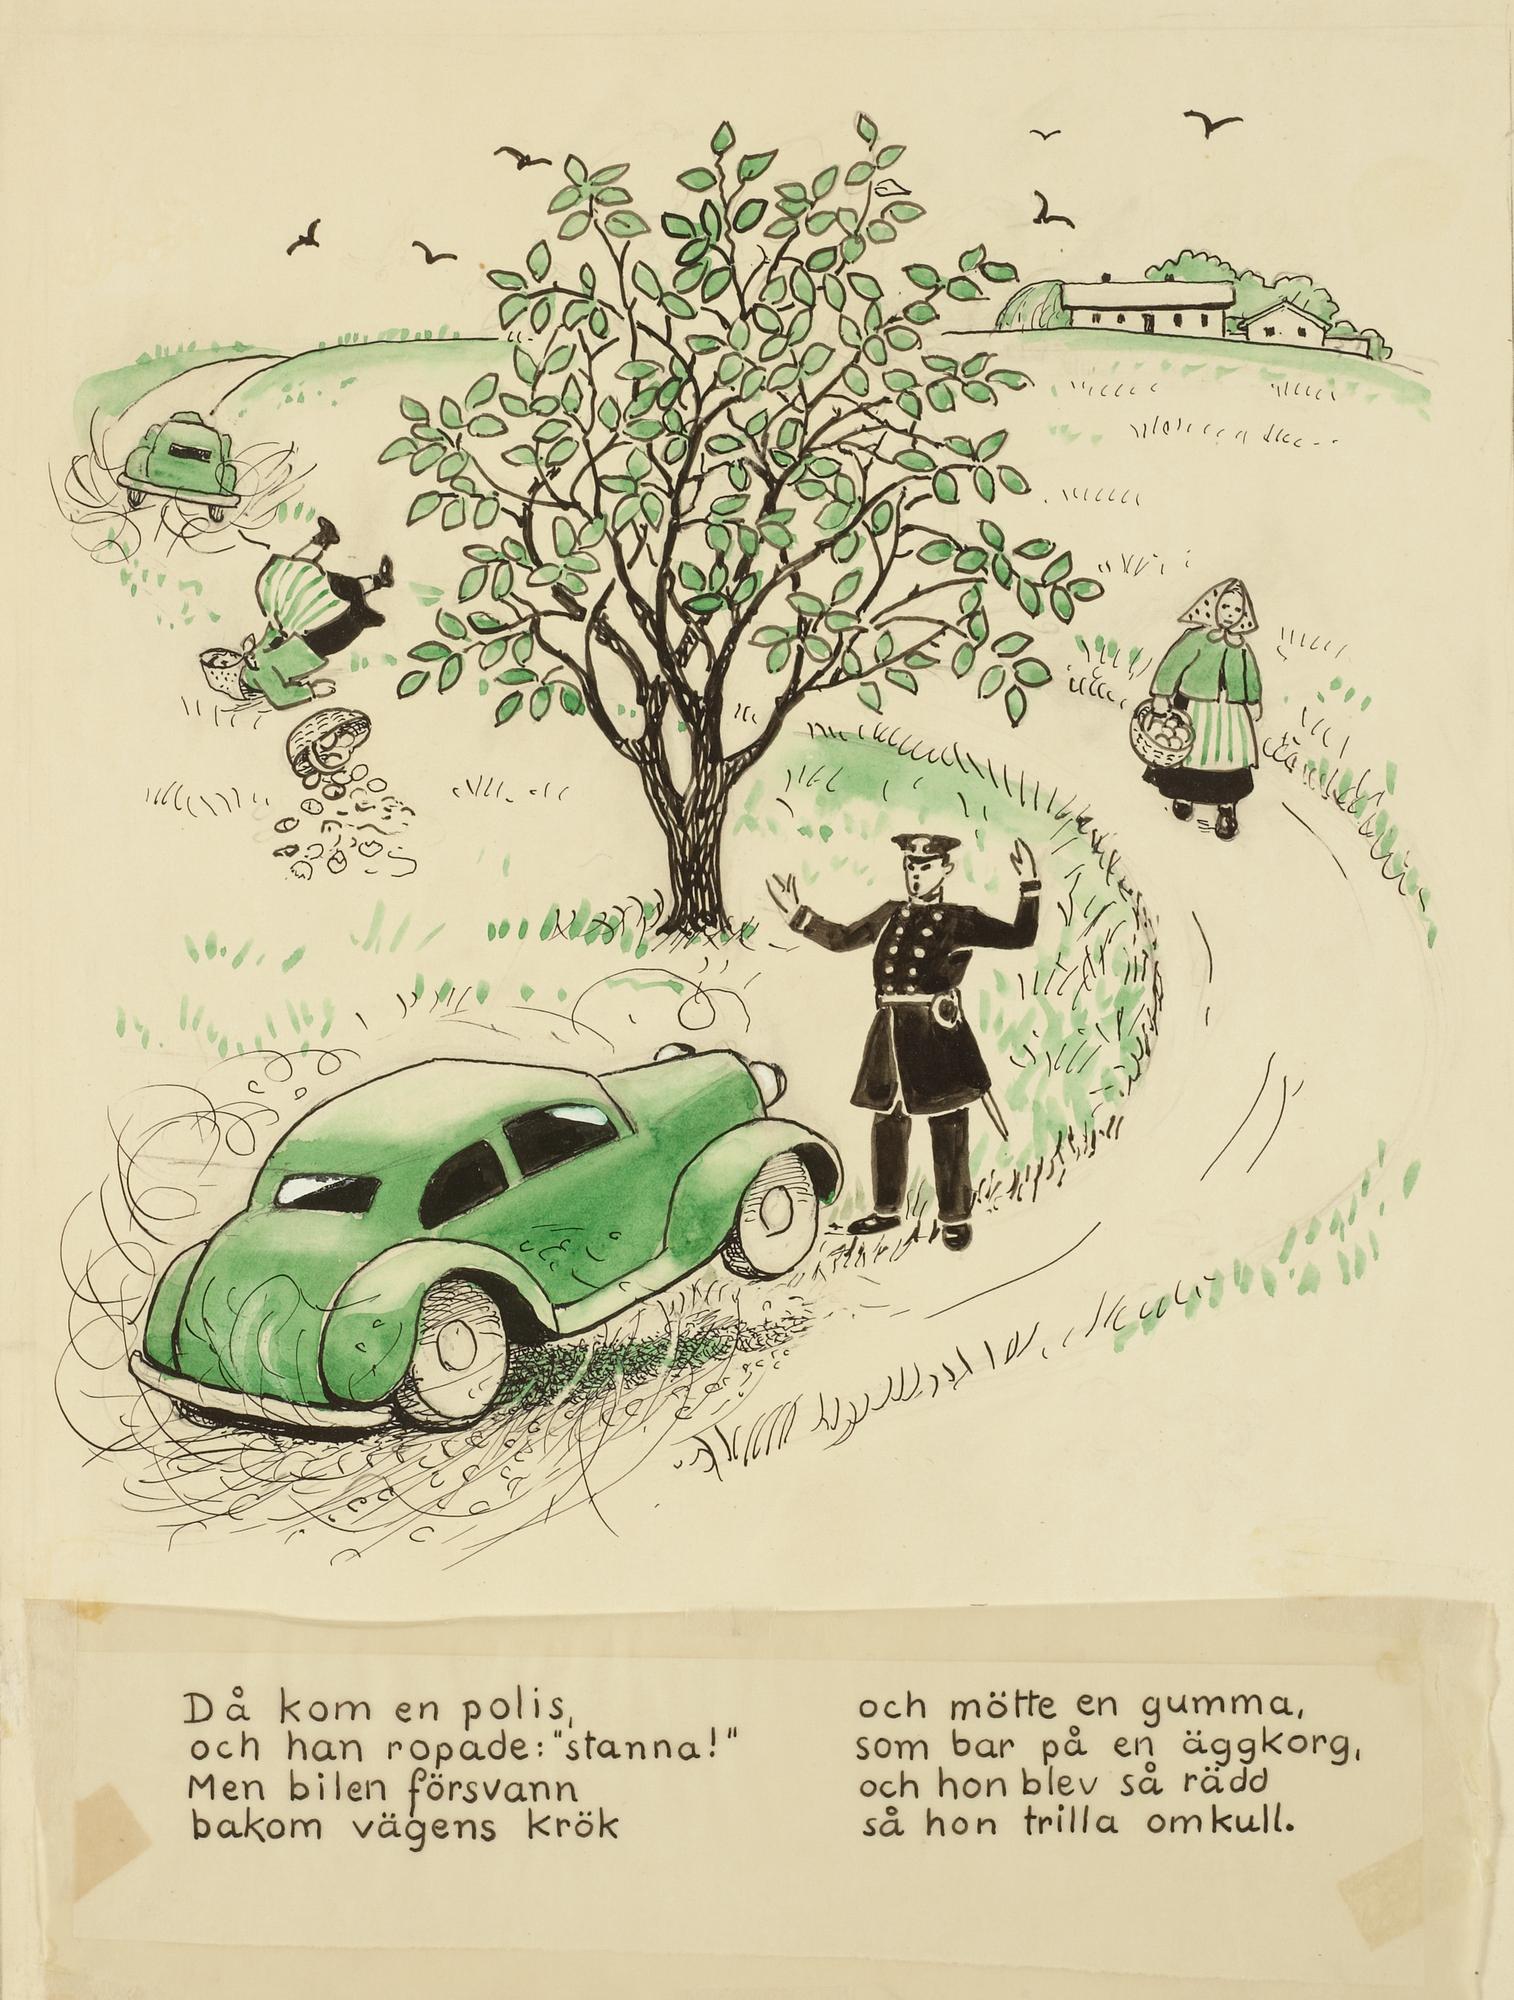 Då kom en polis,
och han ropade: "stanna!"
Men bilen försvann
bakom vägens krök
och mötte en gumma,
som bar på en äggkorg,
och hon blev så rädd
så hon trilla omkull.